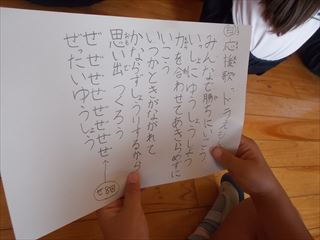 自応援歌、ドラえ
みんなで勝ちにいこう
いっしょにゆうしょう
力を合わせてあきらめずに
いこう
いつかときがながれて
かならずしょうりするから
思い出つくろう
ぜぜぜぜぜぜぜ
ぜったいゆうしょう